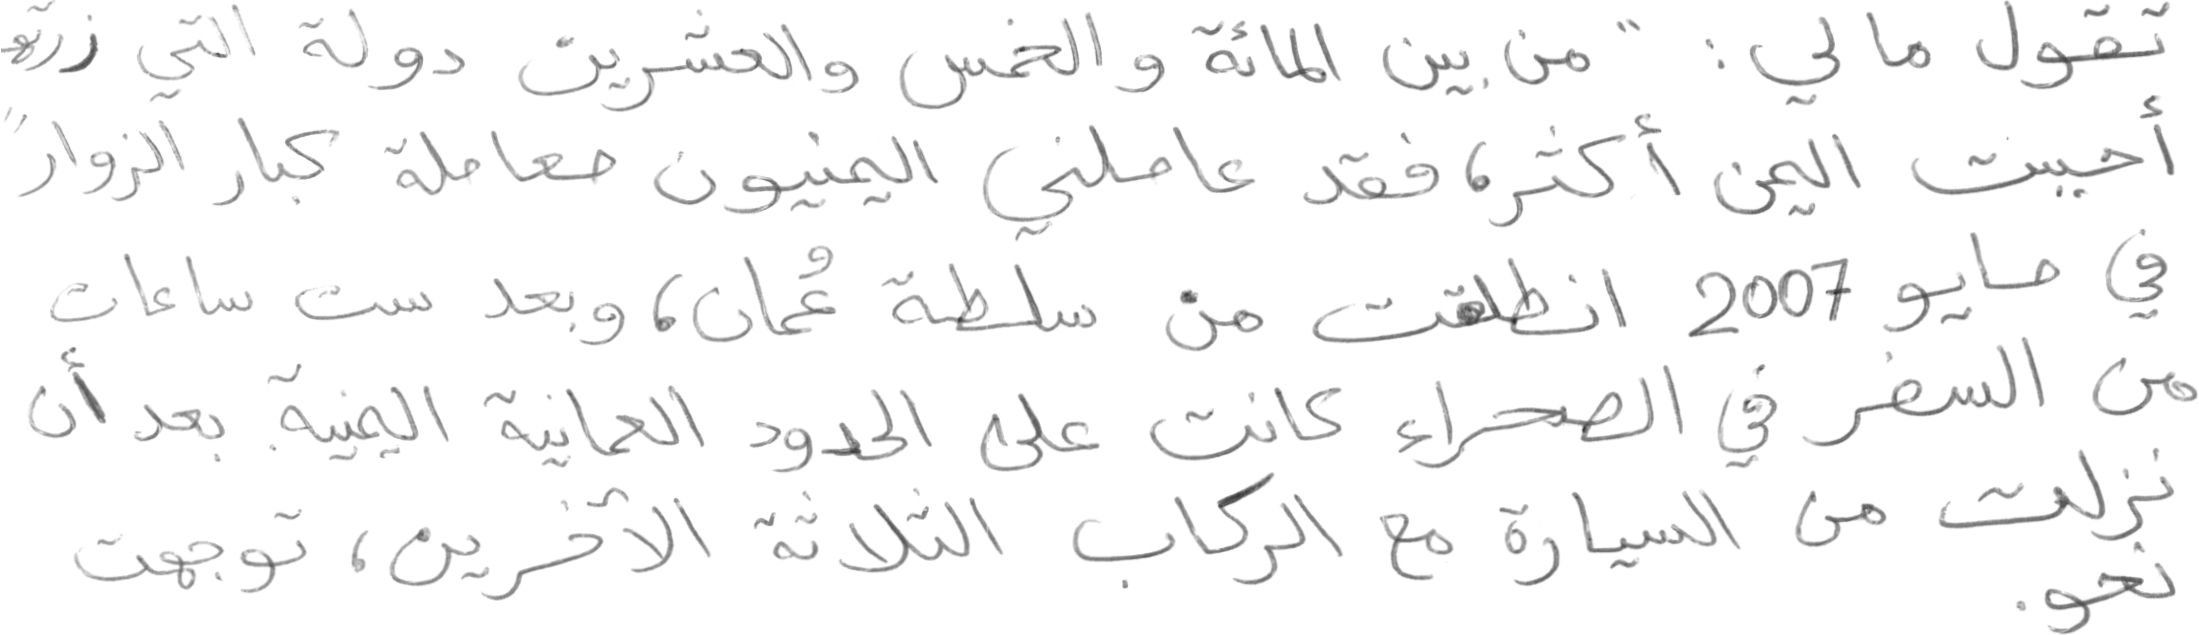 تقول مالي: "من بين المائة والخمس والعشرين دولة التي زرتها
أحببت اليمن أكثر، فقد عاملني اليمنيون معاملة كبار الزوار"
في مايو 2007 انطلقت من سلطة عُمان، وبعد ست ساعات
من السفر في الصحراء كانت على الحدود العمانية اليمنية. بعد أن
نزلت من السيارة مع الركاب الثلاثة الآخرين، توجهت
نحو.